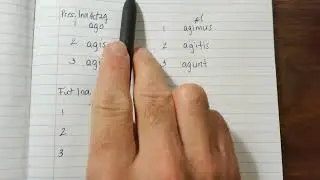 Pres. Ind. Act. sg. pl
1 ago 1 agimus
2 agis 2 agitis
3 3 agunt
Fut Ind
1
2
3